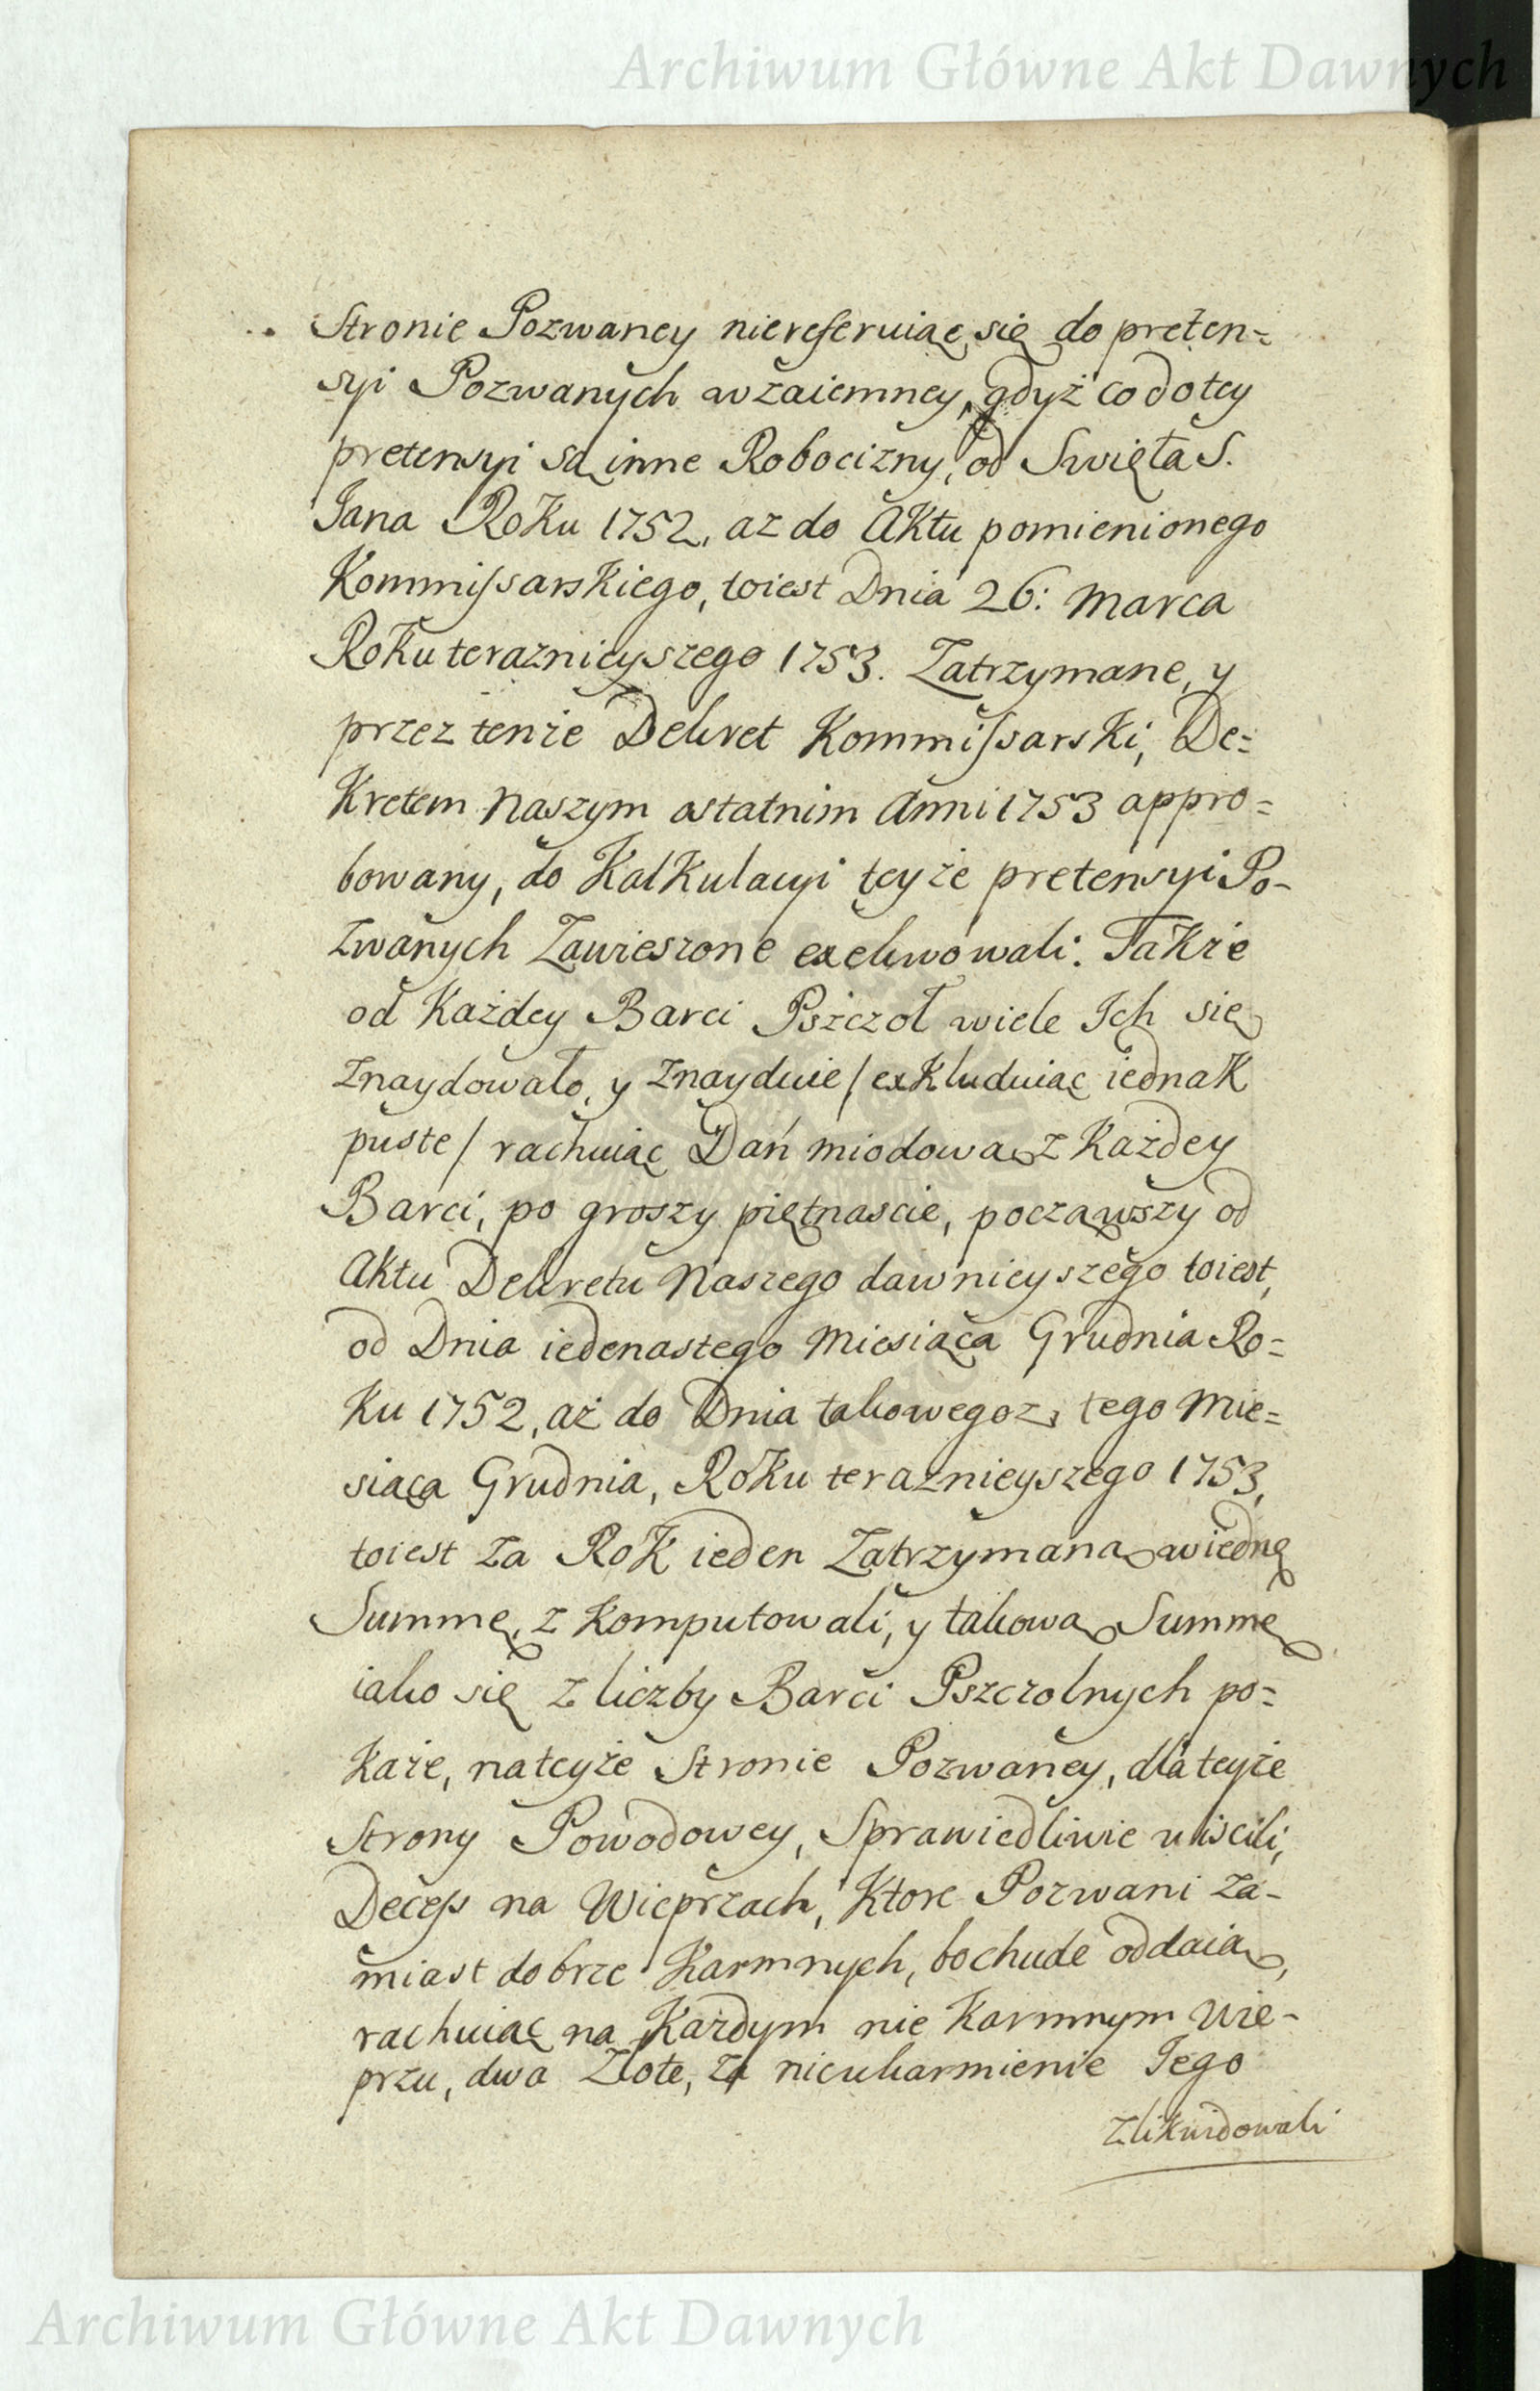 Archiwum Główne Akt Dawnych
Stronie Pozwaney niereferuiąc się do preten=
syi Pozwanych wzaiemney, gdyż co do tey
pretensyi są inne Robocizny, od Swięta S.
Jana Roku 1752, az do Aktu pomienionego
Kommissarskiego, toiest Dnia 26: Marca
Roku teraznieyszego 1753. Zatrzymane, y
przez tenże Dekret Kommissarski, De=
kretem Naszym ostatnim Anni 1753 appro=
bowany, do Kalkulacyi teyże pretensyi Po-
zwanych Zawieszone exekwowali: Takze
od Każdey Barci Pszczoł wiele Ich się
Znaydowało, y Znayduie / exkluduiąc iednak
puste / rachuiąc Dań miodową z Każdey
Barci, po groszy piętnascie, począwszy od
Aktu Dekretu Naszego dawnieyszego toiest,
od Dnia iedenastego Miesiąca Grudnia Ro=
ku 1752, aż do Dnia takowegoz, tego Mie=
siąca Grudnia, Roku teraznieyszego 1753,
toiest za Rok ieden Zatrzymaną wiednę
Summę, z komputowali, y takową Summę
iako się z liczby Barci Pszczolnych po=
każe, na teyże Stronie Pozwaney, dla teyże
Strony Powodowey, Sprawiedliwie uiscili,
Decess na Wieprzach, Ktore Pozwani za-
miast dobrze Karmnych, bo chude oddaią,
rachuiąc na Kazdym nie Karmnym Wie-
przu, dwa Złote, za nieukarmienie Jego
Zlikwidowali
Archiwum Główne Akt Dawnych